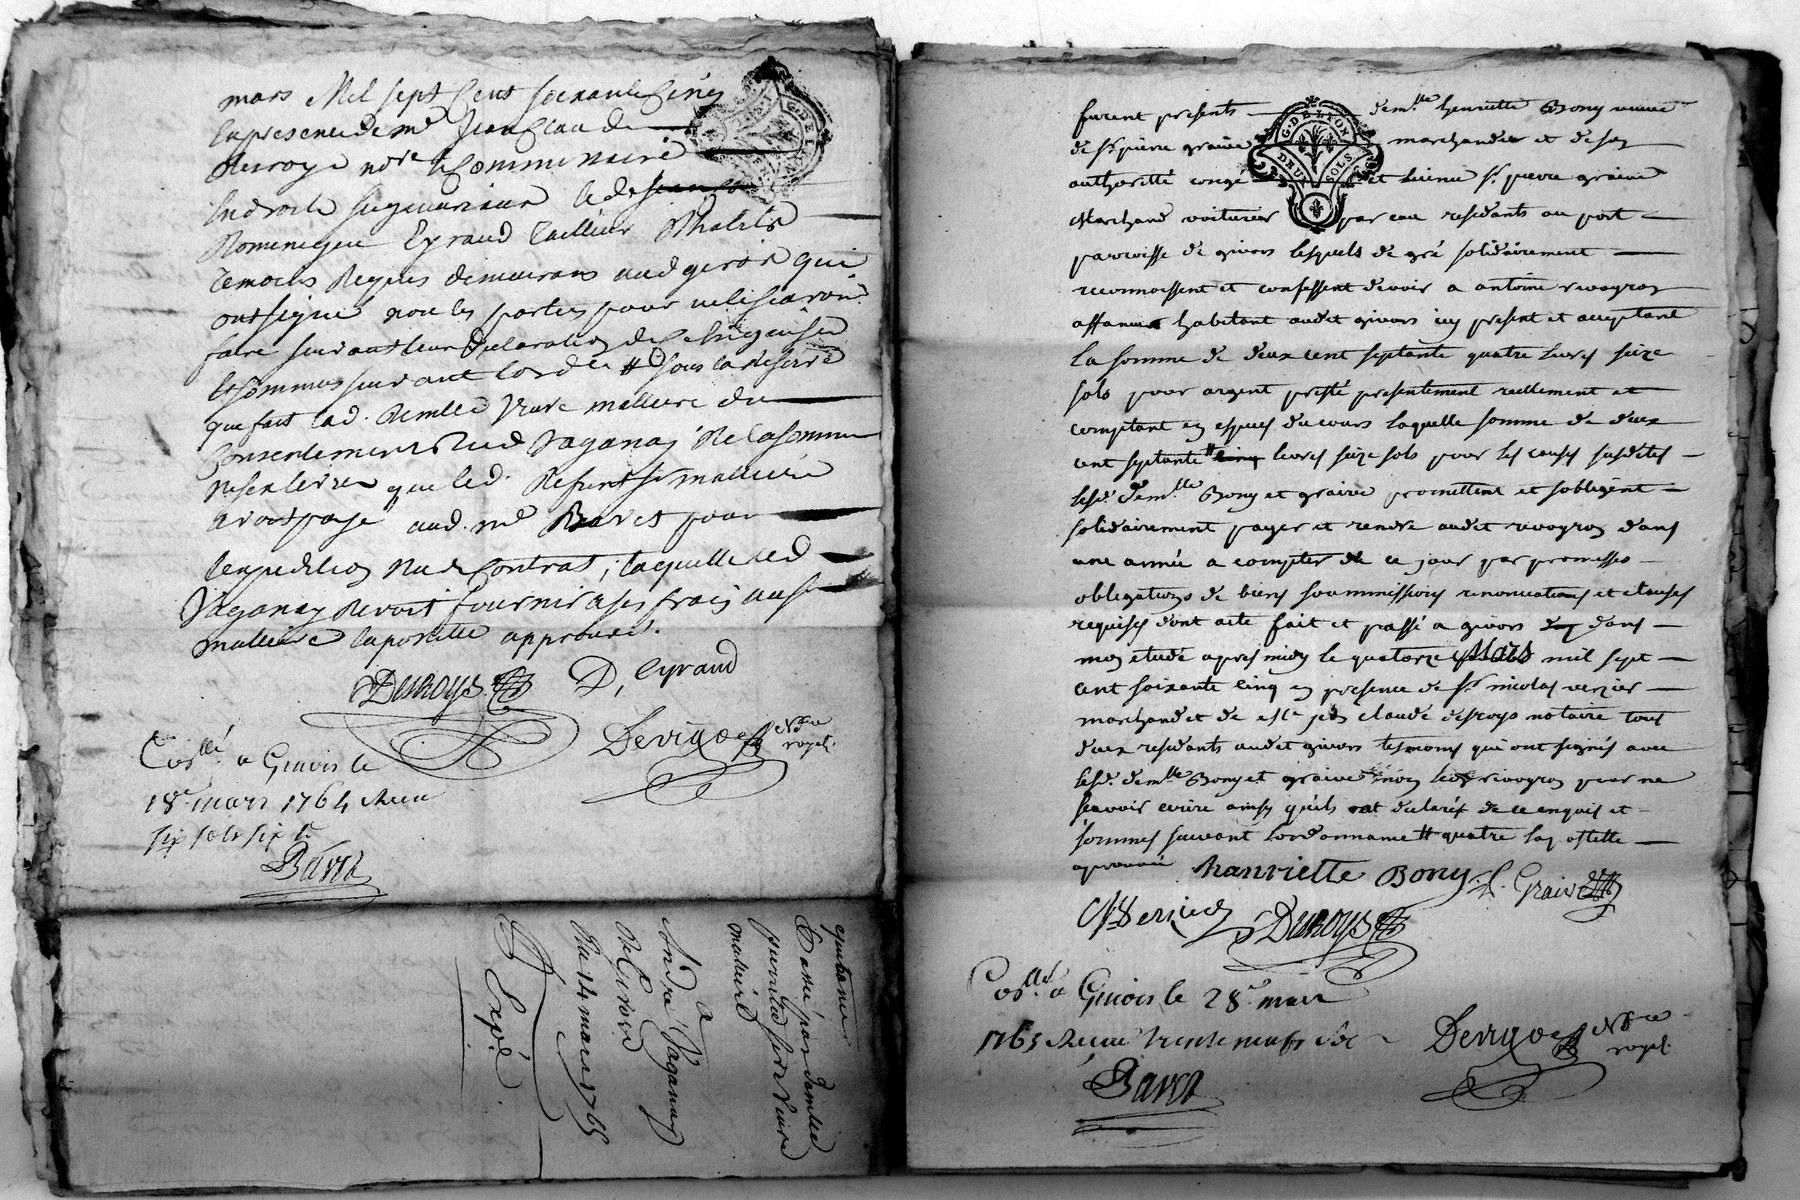 mars Mil sept Cent soixante Cinq
En presence de Me Jean Claude
Desroys nore & Commissaire
En droits seigneuriaux & de
Dominique Eyraud tailleur d'habits
temoins Requis demeurans aud givors qui
ont signé non les parties pour ne le scavoir
faire suivant leur declaration de ce enquises
et sommes suivant lord.ce # sous la Reserve
que fait lad. demlle veuve malleure du
Consentement dud Vaganay de la somme
que led. Defunt sr malleure
avoit payé aud. me Baret pour
lexpedition du Contrat, laquelle led
Vaganay devoit fournir a ses frais aud sr
malleure lapostille approuvé.
Desroys D, Eyraud
Devigne Nre royal.
Collé a Givors le
18e mars 1764 Receu
six sols six d
Baret
quittance
passée par demlle
veuve
malleure
a
André Vaganay
De Givors
Du 14 mars 1765
Expé
G. DE LYON
DEUX SOLS
furent presents demlle henriette Bony veuve
de sr pierre graive marchande et de son
authorité congé et licence sr pierre graive
Marchand voiturier par eau residants au port
parroisse de givors lesquels de gré solidairement
reconnoissent et confessent devoir a antoine revogron
affaneur habitant audit givors icy present et acceptant
la somme de deux cent septante quatre livres seize
sols pour argent presté presentement reellement et
comptant en especes du cours laquelle somme de deux
cent septante # cinq livres seize sols pour les causes susdites
lesd. demlle Bony et graive promettent et sobligent
solidairement payer et rendre audit revogron dans
une année a compter de ce jour par promesses
obligations de biens soummissions renonciations et clauses
requises dont acte fait et passé a givors dans
mon etude apres midy le quatorze Mars mil sept
cent soixante cinq en presence de sr nicolas verzier
marchand et de me jean claude desroys notaire tous
deux residants audit givors temoins qui ont signés avec
lesd. demlle Bony et graive non led revogron pour ne
scavoir ecrire ainsy qu'ils ont declarés de ce enquis et
sommés suivant lordonnance # quatre
aprouvée henriette Bony P. Graive
N Verzieu Desroys
Collé a Givors le 28e mars
1765 Receu trente neuf sols
Devigne Nre royal.
Baret